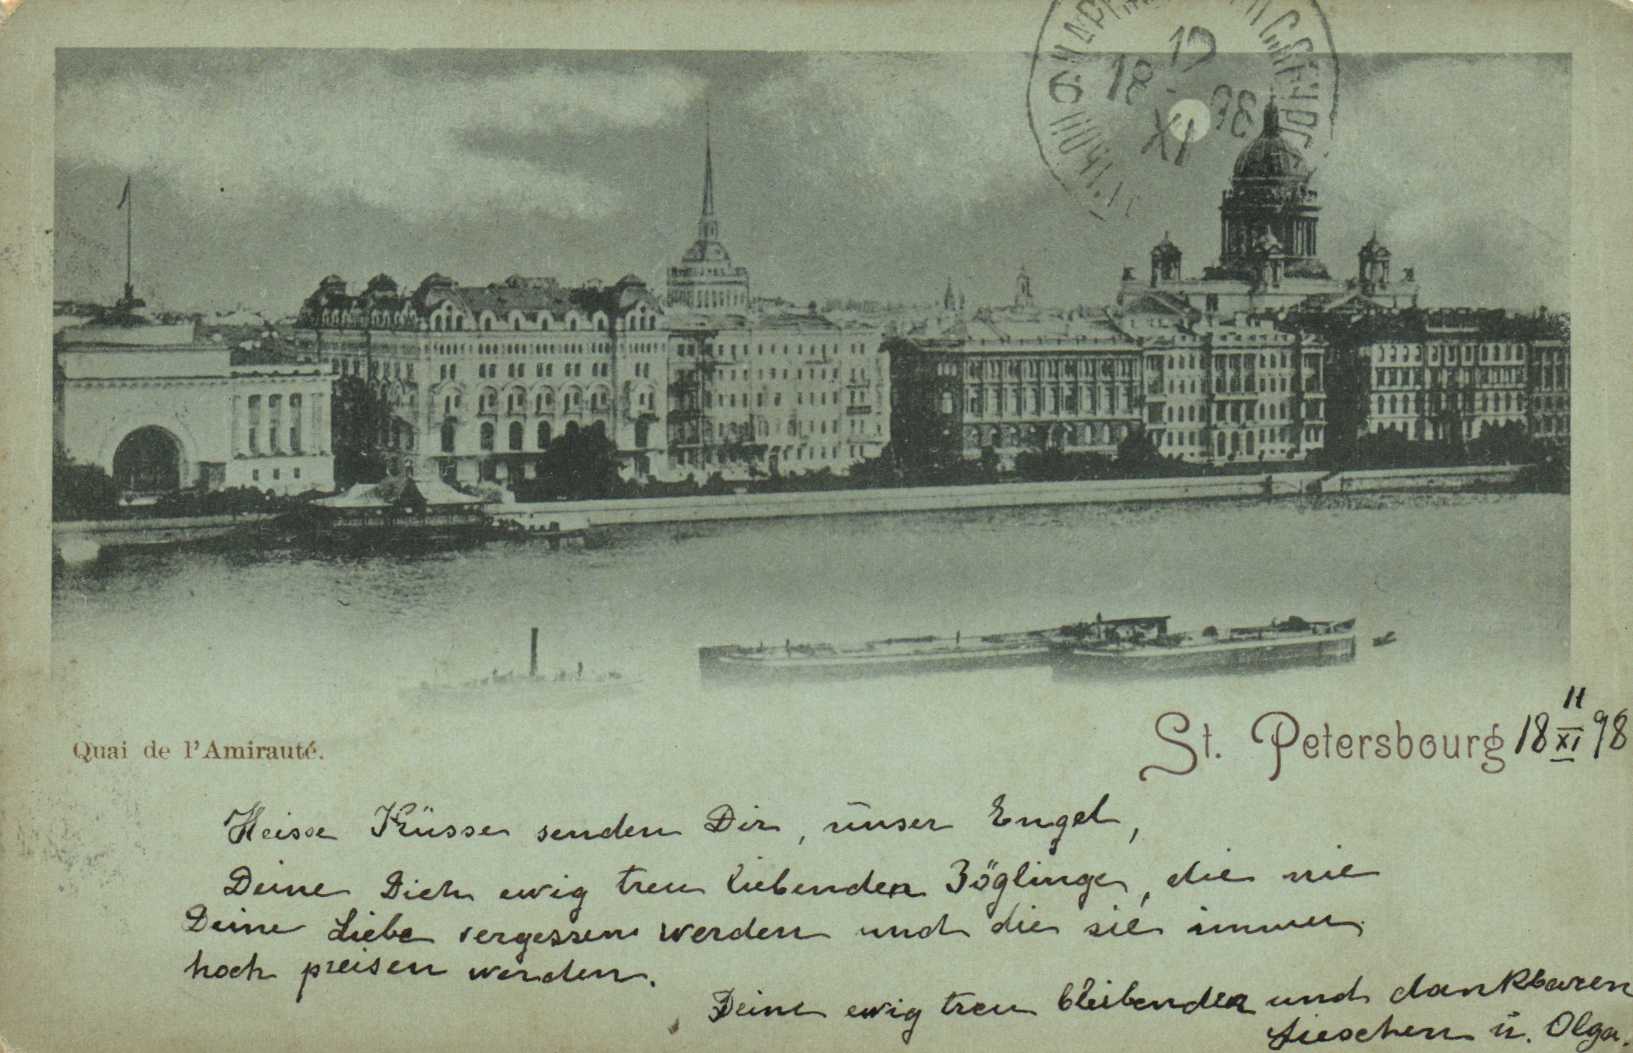 17
18 98
XI
Quai de l'Amirauté.
St. Petersbourg 18 11/XI 98
Heisse Küsse senden Dir, unser Engel,
Deine Dich ewig treu liebenden Zöglinge, die nie
Deine Liebe vergessen werden und die sie immer
hoch preisen werden.
Deine ewig treu bleibenden und dankbaren
Lieschen u. Olga.